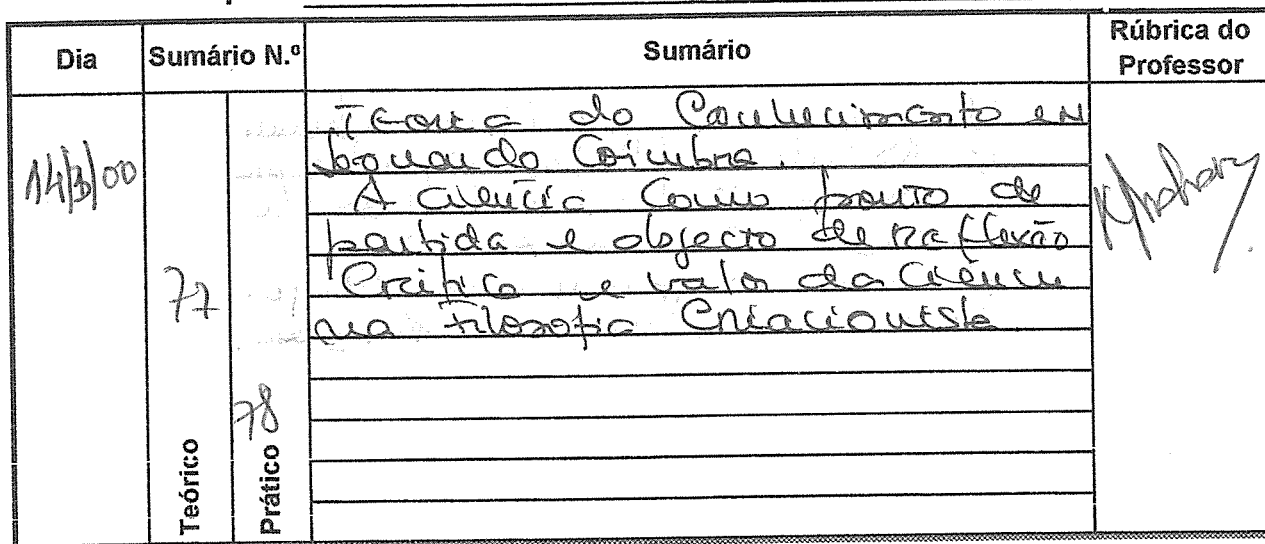 Dia Sumário N.º Sumário Rúbrica do Professor
14/3/00
77
78
Teórico
Prático
Teoria do Conhecimento em
Leonardo Coimbra.
A ciência como ponto de
partida e objecto de reflexão
Crítica e valor da Ciência
na Filosofia Criacionista